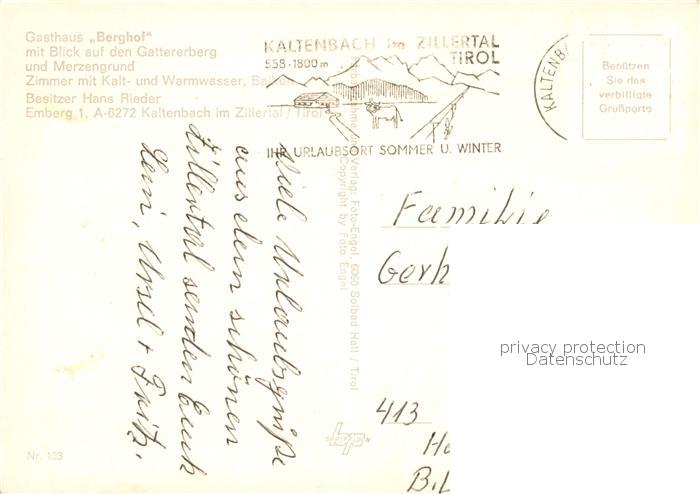 Gasthaus „Berghof“
mit Blick auf den Gattererberg
und Merzengrund
Zimmer mit Kalt- und Warmwasser,
Besitzer Hans Rieder
Emberg 1, A-6272 Kaltenbach im Zillertal / Tirol
KALTENBACH im ZILLERTAL
TIROL
558-1800 m
IHR URLAUBSORT SOMMER U. WINTER
KALTENB
Benützen
Sie das
verbilligte
Grußporto
Viele Urlaubsgrüße
aus dem schönen
Zillertal senden Euch
Leni, Ursel + Fritz.
Verlag: Foto-Engel, 6060 Solbad Hall / Tirol
Copyright by Foto Engel
Familie
Gerh
privacy protection
Datenschutz
413
Nr. 133